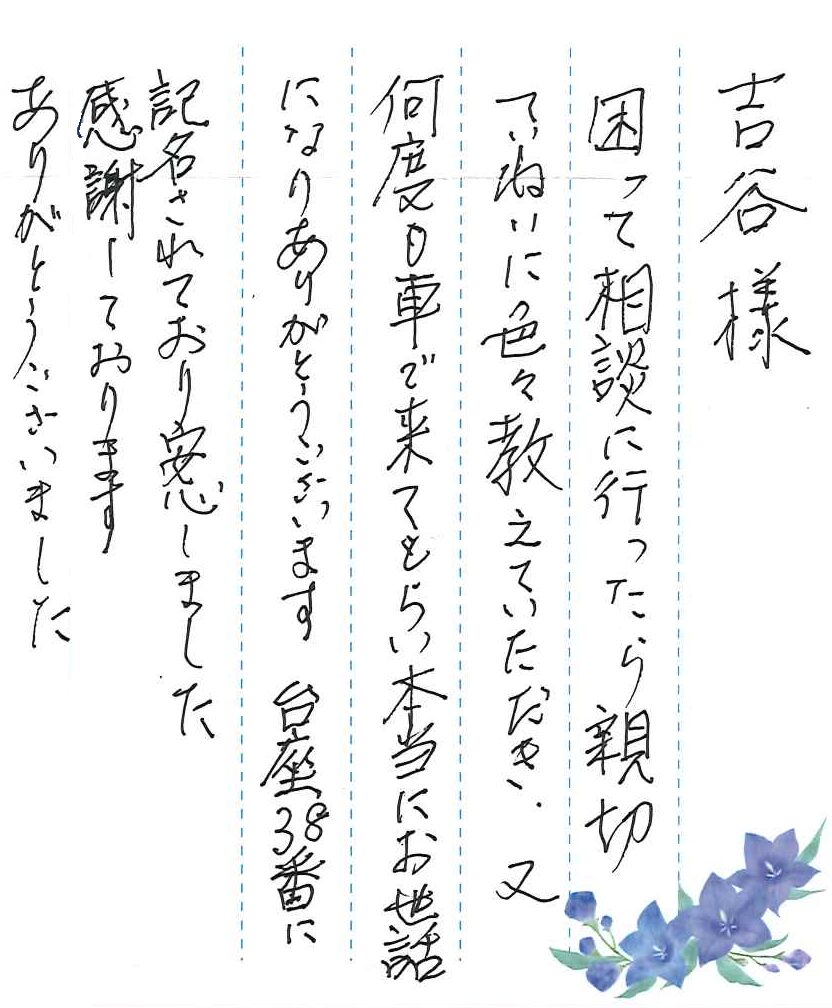 吉谷様
困って相談に行ったら親切
ていねいに色々教えていただき、又
何度も車で来てもらい本当にお世話
になりありがとうございます 台座38番に
記名されており安心しました
感謝しております
ありがとうございました